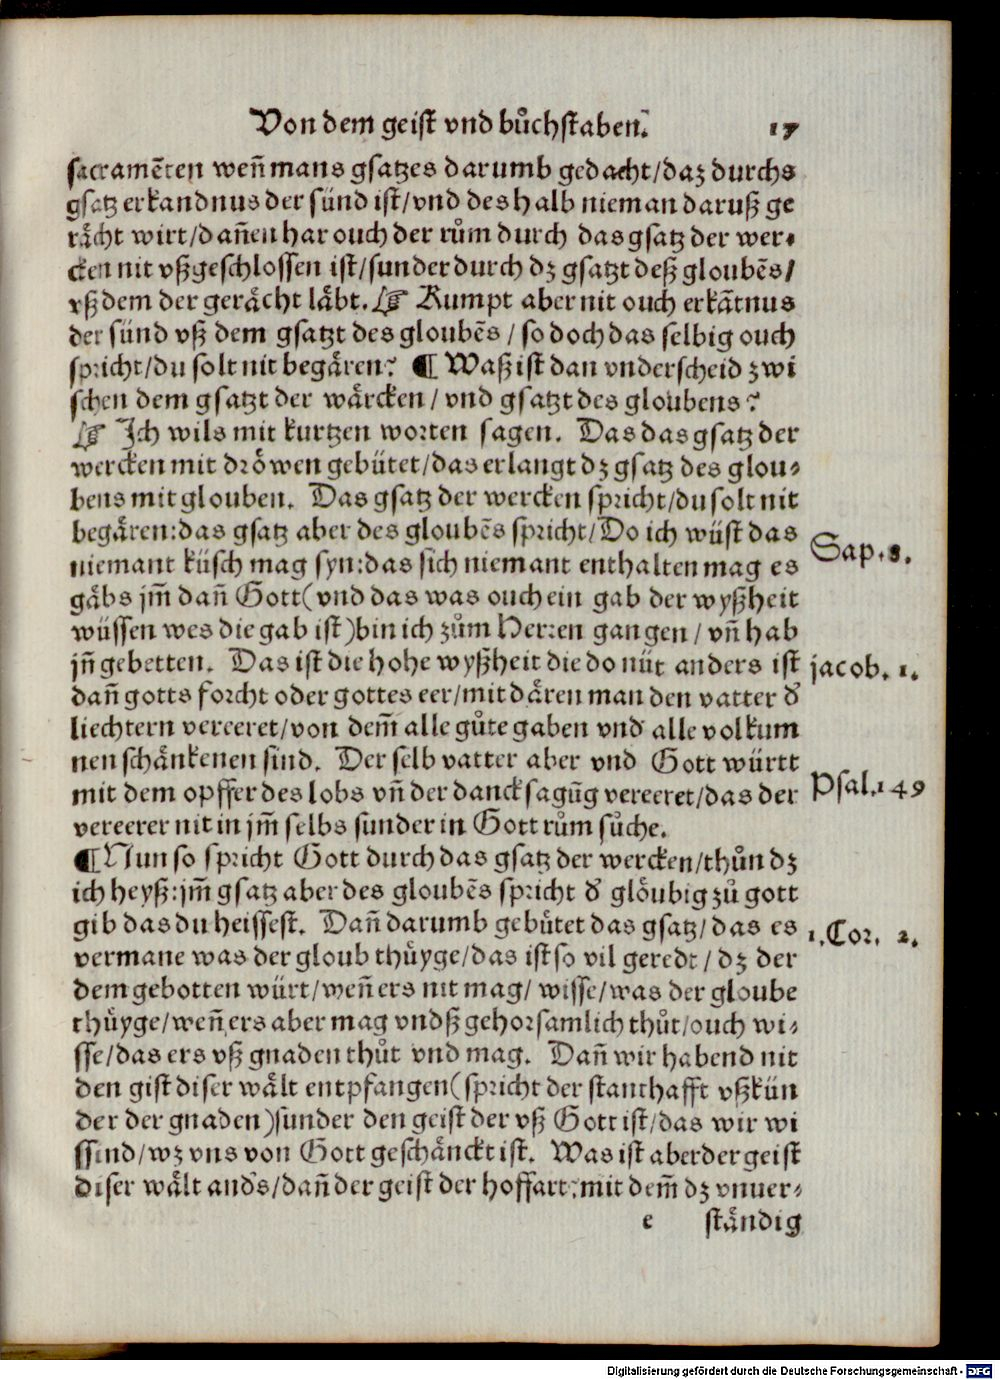 Von dem geist vnd bůchstaben. 17
sacramẽten weñ mans gsatzes darumb gedacht/daz durchs
gsatz erkandnus der sünd ist/vnd des halb nieman daruß ge
rächt wirt/dañen har ouch der rům durch das gsatz der wer-
cken nit vßgeschlossen ist/sunder durch dz gsatzt deß gloubẽs/
vß dem der gerächt läbt. ☞ Kumpt aber nit ouch erkãtnus
der sünd vß dem gsatzt des gloubẽs / so doch das selbig ouch
spricht/du solt nit begären? ¶ Waß ist dan vnderscheid zwi
schen dem gsatzt der wärcken / vnd gsatzt des gloubens?
☞ Ich wils mit kurtzen worten sagen. Das das gsatz der
wercken mit dröwen gebütet/das erlangt dz gsatz des glou-
bens mit glouben. Das gsatz der wercken spricht/du solt nit
begären:das gsatz aber des gloubẽs spricht/Do ich wüst das
niemant küsch mag syn:das sich niemant enthalten mag es
gäbs jm̃ dañ Gott(vnd das was ouch ein gab der wyßheit
wüssen wes die gab ist)bin ich zům Herren gangen / vñ hab
jñ gebetten. Das ist die hohe wyßheit die do nüt anders ist
dañ gotts forcht oder gottes eer/mit dären man den vatter d᷑
liechtern vereeret/von dem̃ alle gůte gaben vnd alle volkum
nen schänkenen sind. Der selb vatter aber vnd Gott württ
mit dem opffer des lobs vñ der dancksagũg vereeret/das der
vereerer nit in jm̃ selbs sunder in Gott rům sůche.
¶ Nun so spricht Gott durch das gsatz der wercken/thůn dz
ich heyß:jm̃ gsatz aber des gloubẽs spricht d᷑ glöubig zů gott
gib das du heissest. Dañ darumb gebütet das gsatz/das es
vermane was der gloub thüyge/das ist so vil geredt / dz der
dem gebotten würt/weñ ers nit mag/ wisse/was der gloube
thüyge/weñ ers aber mag vndß gehorsamlich thůt/ouch wi-
sse/das ers vß gnaden thůt vnd mag. Dañ wir habend nit
den gist diser wält entpfangen(spricht der stanthafft vßkün
der der gnaden)sunder den geist der vß Gott ist/das wir wi
ssind/wz vns von Gott geschänckt ist. Was ist aber der geist
diser wält and᷑s/dañ der geist der hoffart:mit dem̃ dz vnuer-
e ständig
Sap. 8.
jacob. 1.
Psal.149
1.Cor. 2.
Digitalisierung gefördert durch die Deutsche Forschungsgemeinschaft - DFG